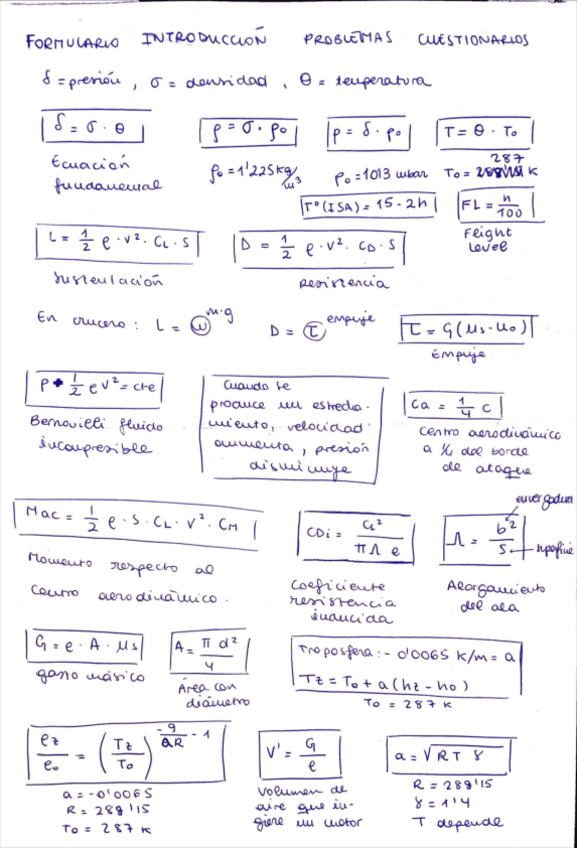 FORMULARIO INTRODUCCIÓN PROBLEMAS CUESTIONARIOS
δ = presión, σ = densidad, θ = temperatura
δ = σ · θ
ρ = σ · ρ₀
p = δ · p₀
T = θ · T₀
Ecuación fundamental
ρ₀ = 1'225 kg/m³
p₀ = 1013 mbar
287
T₀ = K
Tº (ISA) = 15 - 2h
FL = h/100
Flight level
L = 1/2 ρ · v² · CL · S
D = 1/2 ρ · v² · CD · S
Sustentación
Resistencia
En crucero: L = ω m·g
D = τ empuje
τ = G (μs - μ₀)
Empuje
P + 1/2 ρ v² = cte
Bernouilli fluido
incompresible
Cuando se
produce un estrecha-
miento, velocidad
aumenta, presión
disminuye
Ca = 1/4 C
Centro aerodinámico
a 1/4 del borde
de ataque
Mac = 1/2 ρ · S · CL · V² · CM
Momento respecto al
Centro aerodinámico.
CDi = CL²/πΛe
Coeficiente
resistencia
inducida
envergadura
Λ = b²/S superficie
Alargamiento
del ala
G = ρ · A · μs
gasto másico
A = π d²/4
Área con
diámetro
Troposfera: - 0'0065 K/m = a
Tz = T₀ + a (hz - h₀)
T₀ = 287 K
ρz/ρ₀ = (Tz/T₀)^(g/aR - 1)
a = -0'0065
R = 289'15
T₀ = 287 K
V' = G/ρ
Volumen de
aire que in-
giere un motor
a = √R T γ
R = 289'15
γ = 1'4
T depende